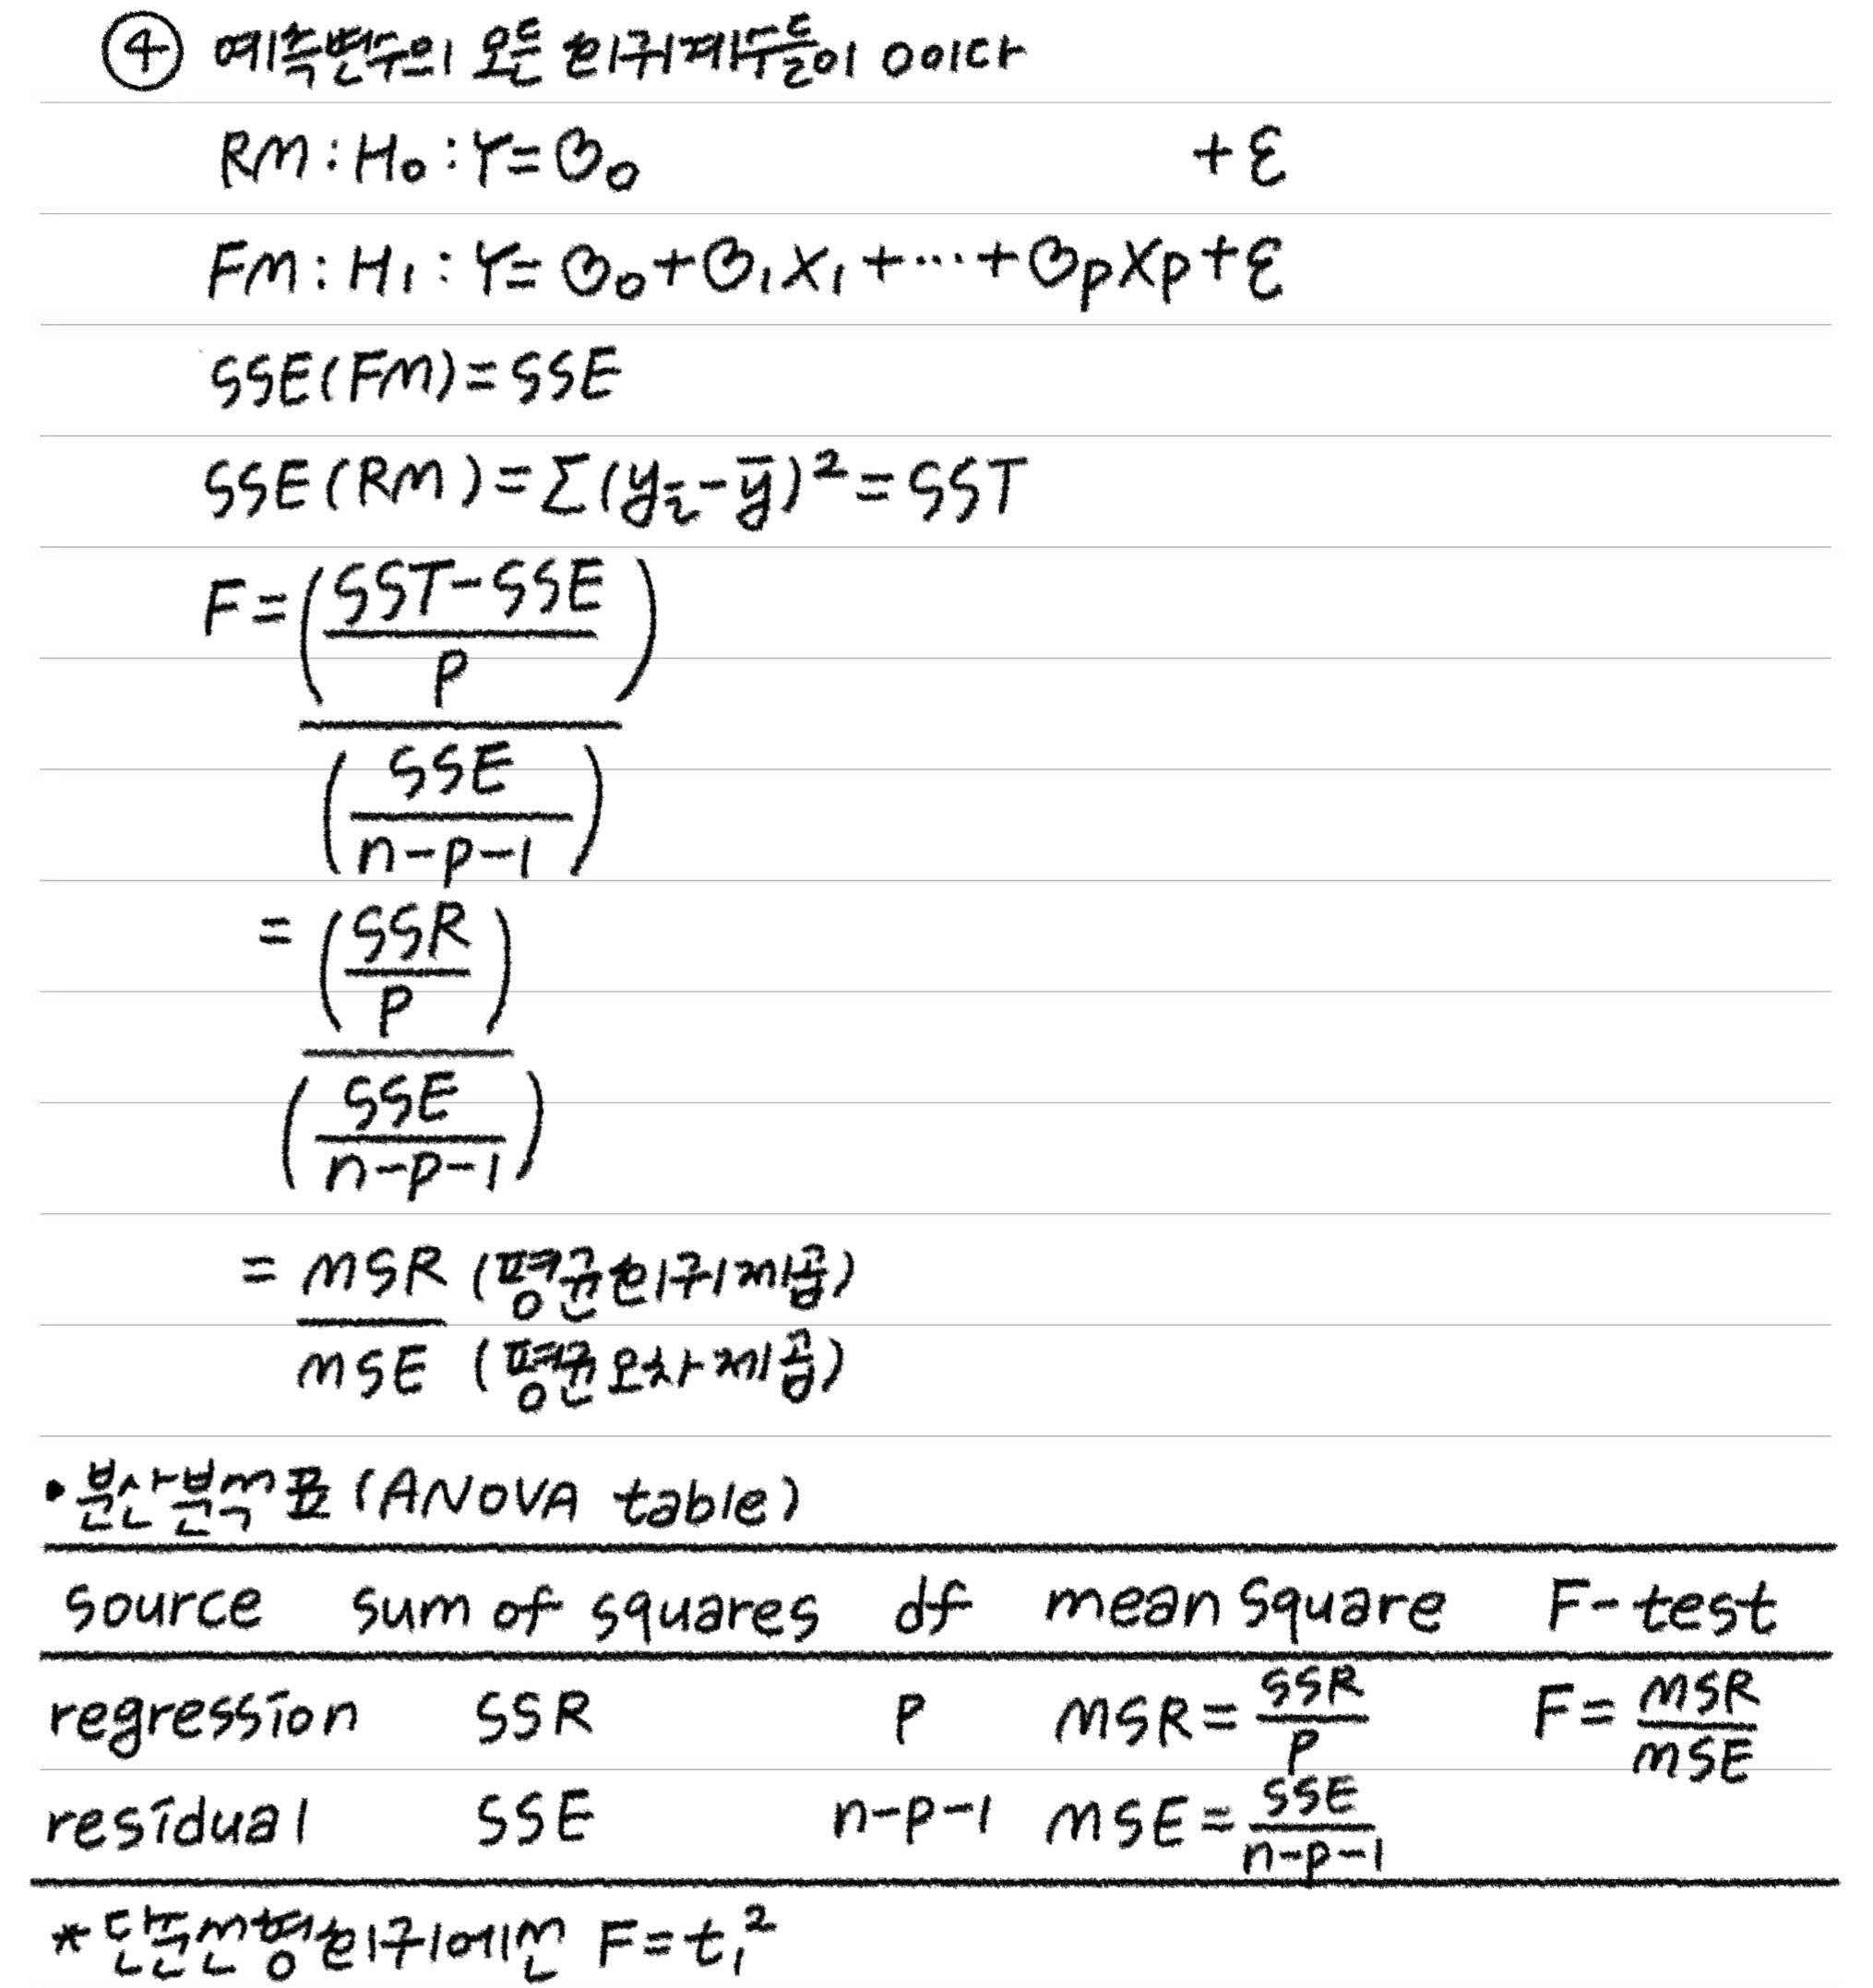 ④ 예측변수의 모든 회귀계수들이 0이다
RM : H₀ : Y = β₀ + ε
FM : H₁ : Y = β₀ + β₁X₁ + ··· + βpXp + ε
SSE(FM) = SSE
SSE(RM) = Σ(yᵢ - ȳ)² = SST
F = ((SST - SSE)/p) / (SSE/(n-p-1))
= (SSR/p) / (SSE/(n-p-1))
= MSR (평균회귀제곱) / MSE (평균오차제곱)
• 분산분석표 (ANOVA table)
source sum of squares df mean square F-test
regression SSR p MSR = SSR/p F = MSR/MSE
residual SSE n-p-1 MSE = SSE/(n-p-1)
* 단순선형회귀에선 F = t₁²